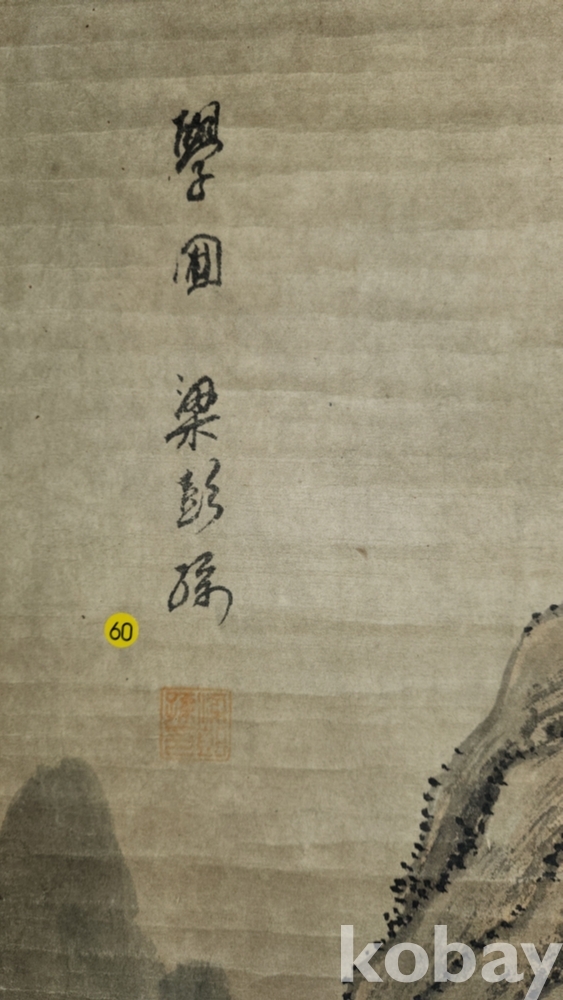 學圃 梁彭孫
60
kobay